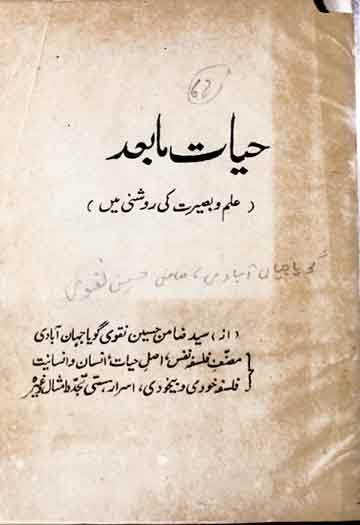 62
حیات مابعد
(علم و بصیرت کی روشنی میں)
گویا جہاں آبادی، ضامن حسین نقوی
(از) سید ضامن حسین نقوی گویا جہان آبادی
مصنف فلسفہ نفس، اصل حیات، انسان و انسانیت
فلسفہ خودی و بیخودی، اسرار ہستی، تجدد امثال وغیرہ